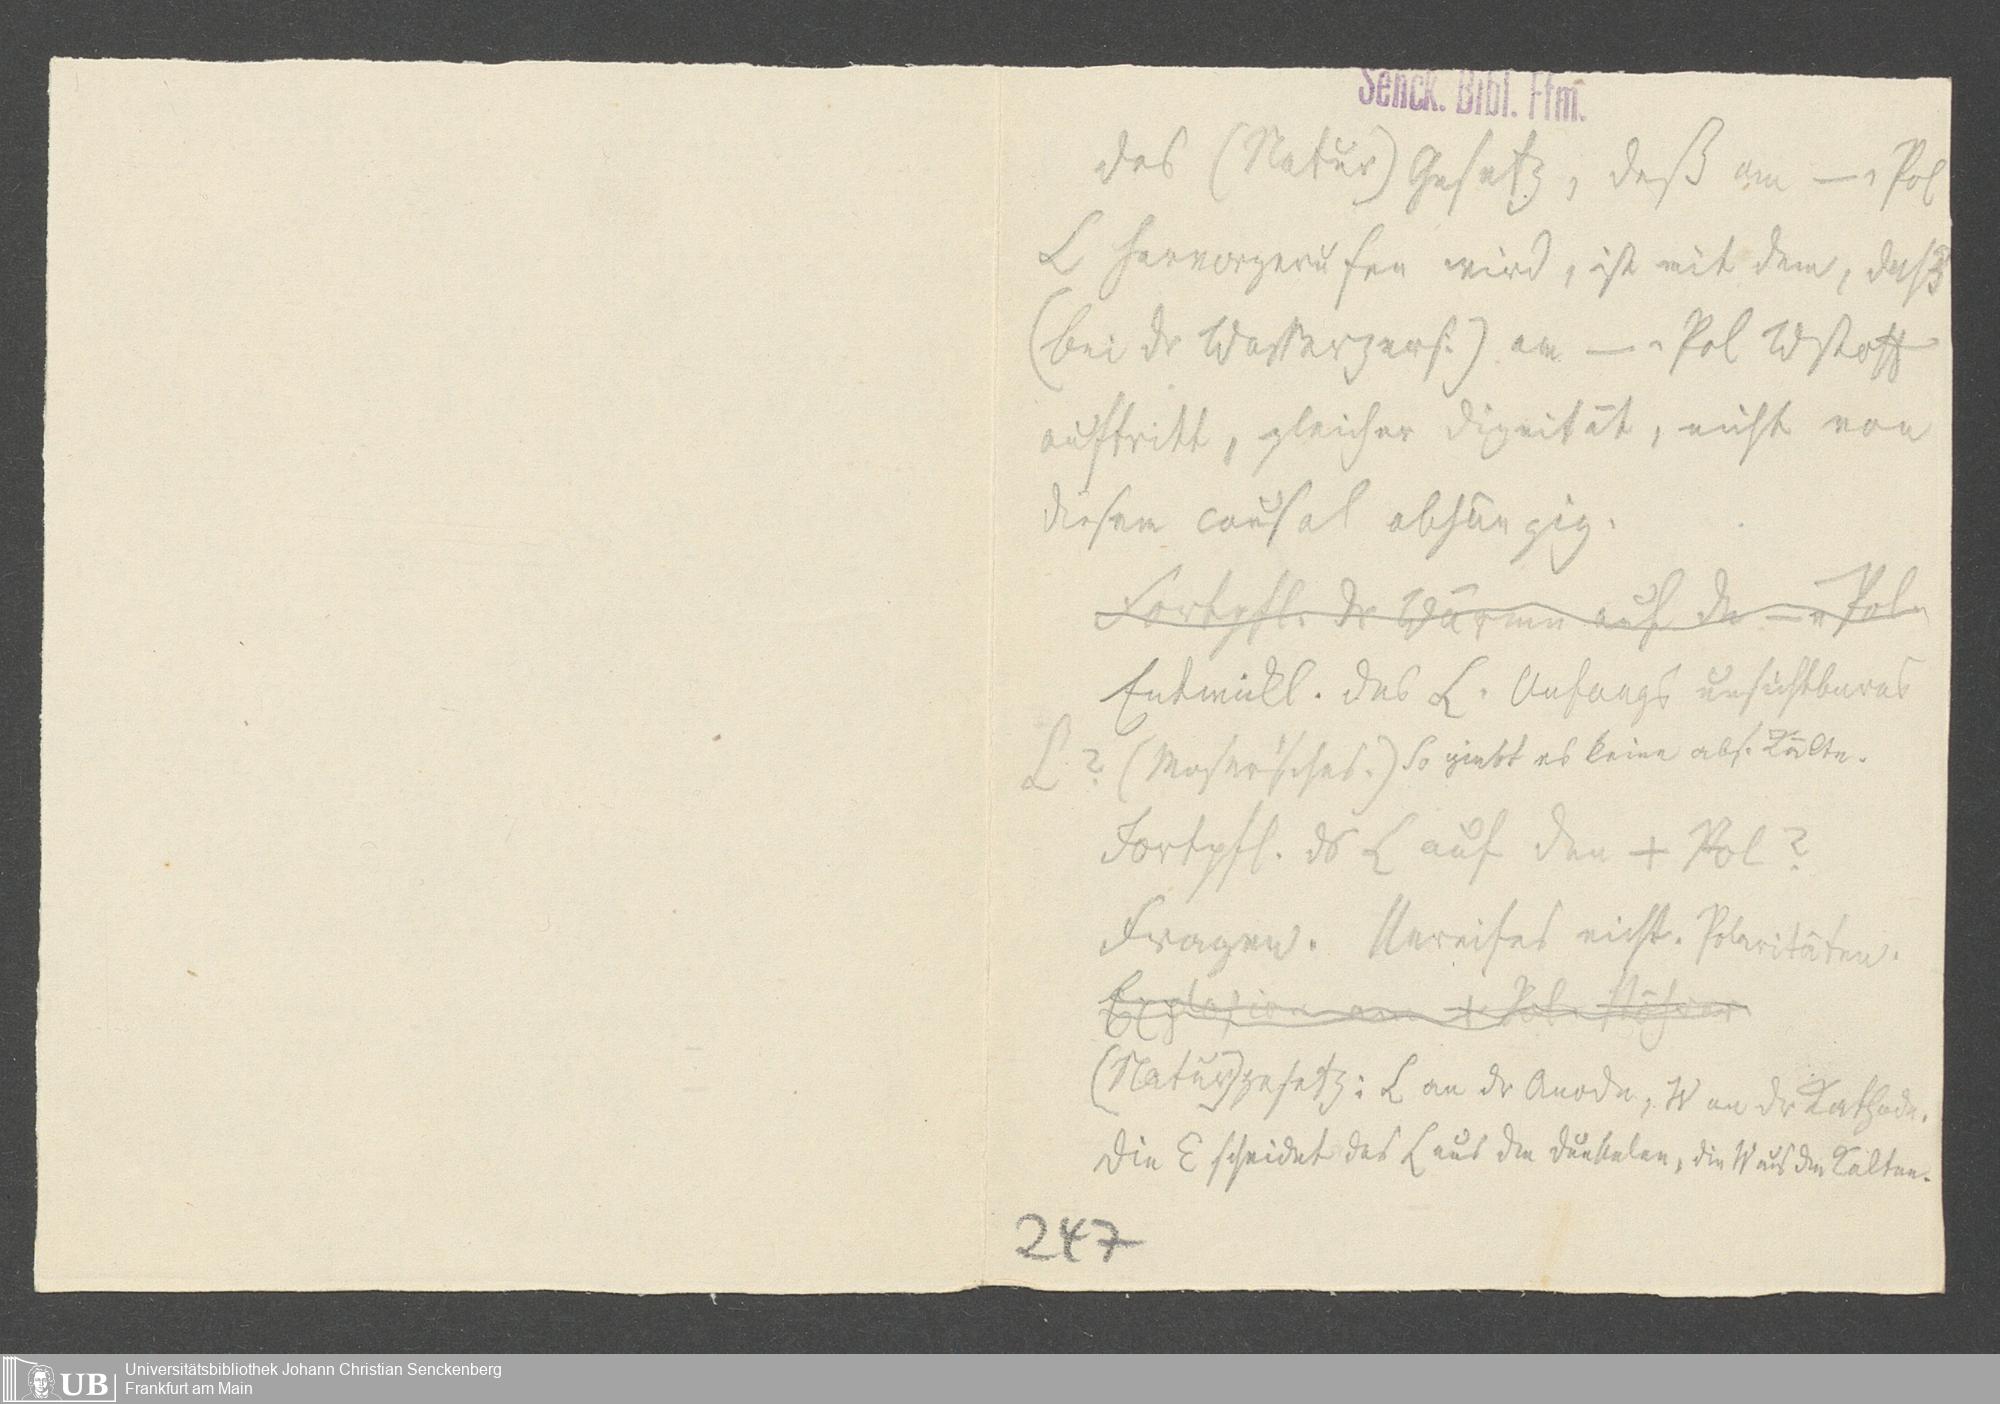 Senck. Bibl. Ffm.
Das (Natur) Gesetz, daß am — Pol
L hervorgerufen wird, ist mit dem, daß
(bei dr Wasserzers.) am — Pol Wstoff
auftritt, gleicher Dignität, nicht von
diesem causal abhängig.
Fortpfl. dr Wärme auf den — Pol
Entwickl. des L. Anfangs unsichtbares
L? (Moser'sches.) So giebt es keine abs. Kälte.
Fortpfl. ds L auf den + Pol?
Fragen. Unreifes nicht. Polaritäten.
Explosion am + Pol
(Natur)gesetz: L an dr Anode, W an dr Kathode.
Die E scheidet das L aus dem Dunkelen, die W aus dem Kalten.
247
UB
Universitätsbibliothek Johann Christian Senckenberg
Frankfurt am Main